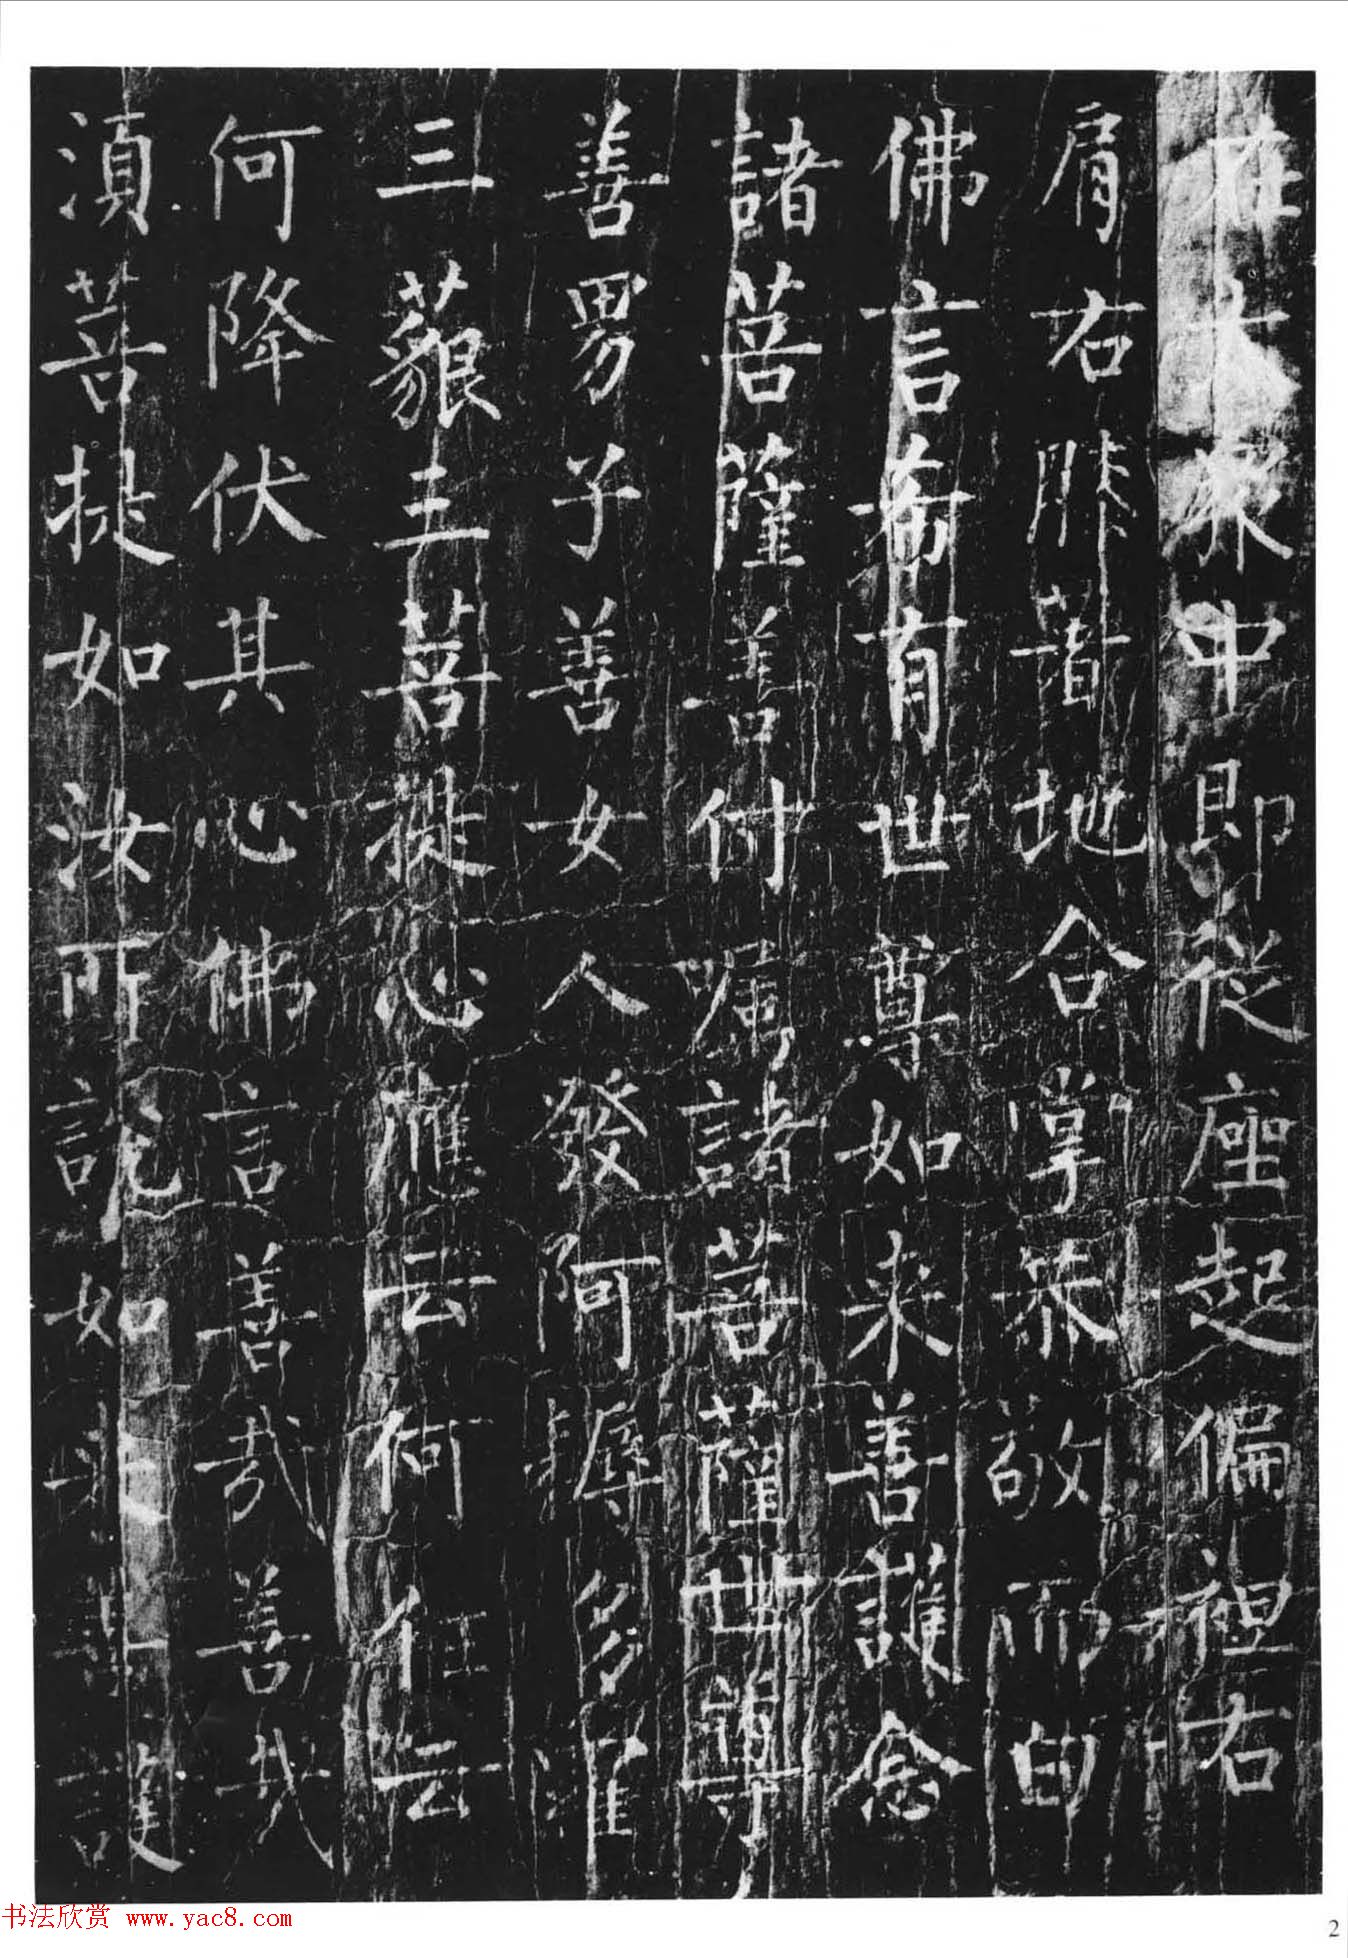 在大眾中即從座起偏袒右
肩右膝著地合掌恭敬而白
佛言希有世尊如來善護念
諸菩薩善付囑諸菩薩世尊
善男子善女人發阿耨多羅
三藐三菩提心應云何住云
何降伏其心佛言善哉善哉
湏菩提如汝所說如來善護
书法欣赏 www.yac8.com
2